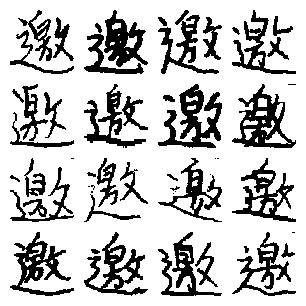 邀邀邀邀
邀邀邀邀
邀邀邀邀
邀邀邀邀